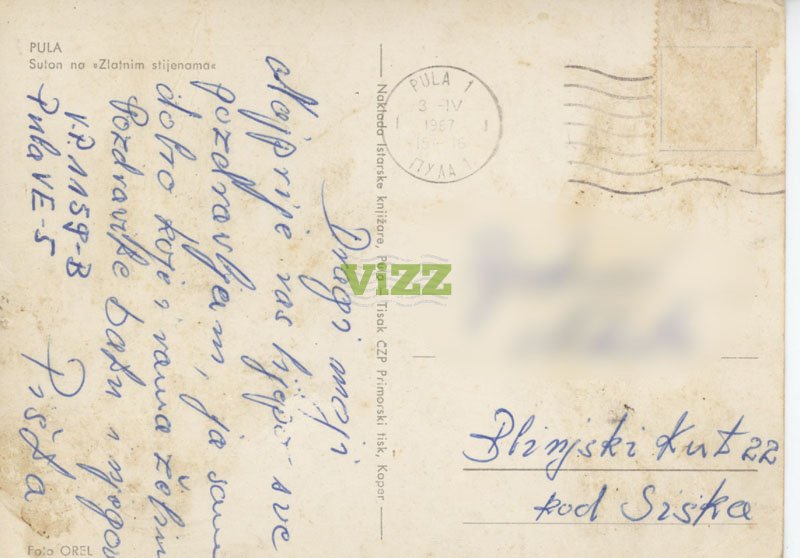 PULA
Suton na »Zlatnim stijenama«
Dragi moji
Najprije vas ljepo sve
pozdravljam, ja sam
dobro koje i vama želim
Pozdravite batu i njegov
V.P. 1159-B
Pula VE-5
Pišta
Foto OREL
Naklada Istarske knjižare, Pula – Tisak ČZP Primorski tisk, Koper
PULA 1
3-IV
1967
ПУЛА
VIZZ
Blinjski Kut 22
kod Siska